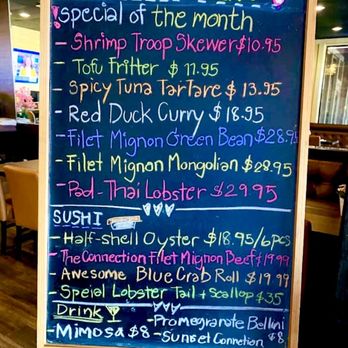 special of the month
- Shrimp Troop Skewer $10.95
- Tofu Fritter $ 11.95
- Spicy Tuna Tartare $ 13.95
- Red Duck Curry $ 18.95
- Filet Mignon Green Bean $28.95
- Filet Mignon Mongolian $28.95
- Pad-Thai Lobster $29.95
SUSHI
- Half-shell Oyster $18.95/6pcs
- The Connection Filet Mignon Beef $19.99
- Awesome Blue Crab Roll $19.99
- Speial Lobster Tail + Scallop $35
Drink
- Promegranate Bellini
- Mimosa $8
- Sunset Connetion $8